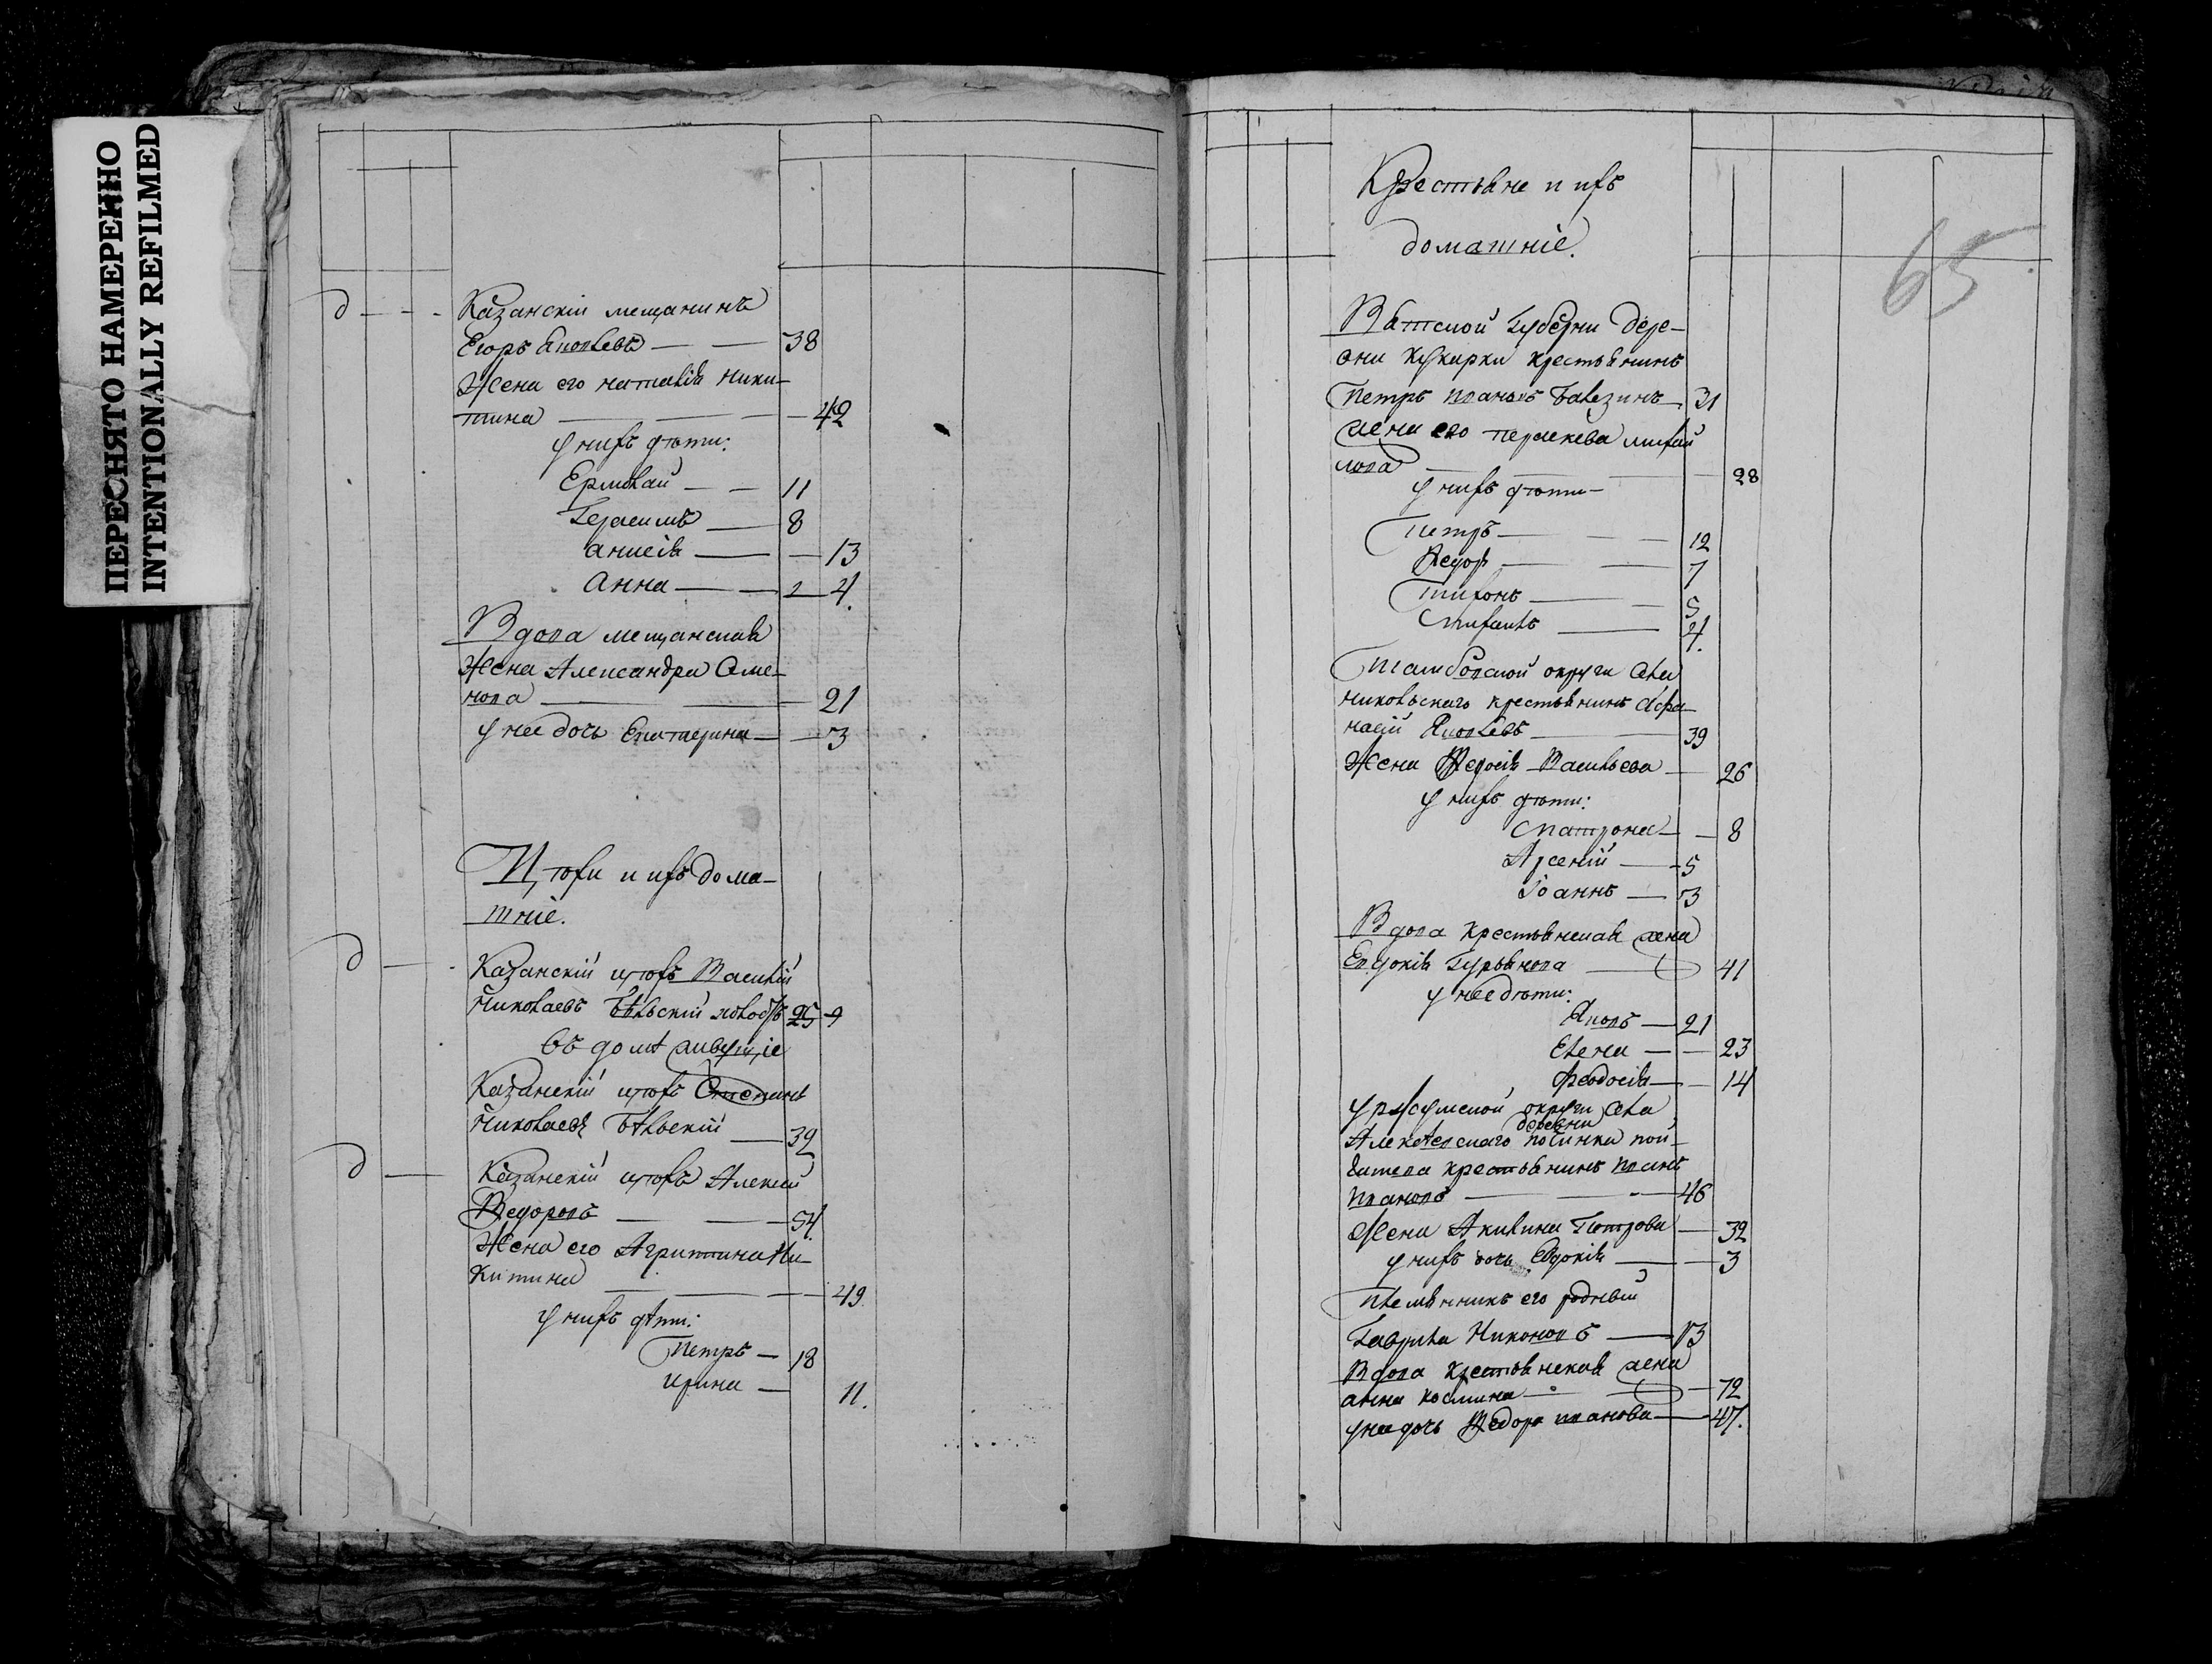 ПЕРЕСНЯТО НАМЕРЕННО
INTENTIONALLY REFILMED
д
Казанскій мещанинъ
Егоръ Яковлевъ 38
Жена его наталія ники-
тина 42
у нихъ дѣти:
Ермолай 11
Герасимъ 8
анисія 13
Анна 4.
Вдова мещанская
Жена Александра Семе-
нова 21
у нее дочь Екатерина 3
Цѣхи и ихъ дома-
шніе.
д
Казанскій цѣхъ Василій
Николаевъ Бѣльскій холостъ 25
въ домѣ живущіе
Казанскій цѣхъ Степанъ
Николаевъ Бѣльскій 39
д
Казанскій цѣхъ Алексѣй
Федоровъ 54
Жена его Агрипина Ни-
китина 49
у нихъ дѣти:
Петръ 18
ирина 11.
Крестьяне и ихъ
домашніе.
65
Вятской Губерни дере-
вни кукарки крестьянинъ
Петръ ивановъ 31
жена его параскева михай
лова 28
у нихъ дѣти
Петръ 12
Федоръ 7
Тихонъ 5
михаилъ 4.
Тамбовской округи села
никольскаго крестьянинъ Афа-
насій Яковлевъ 39
Жена Федосія Васильева 26
у нихъ дѣти:
матрона 8
Арсеній 5
Іоаннъ 3
Вдова крестьянская жена
Евдокія Гурьянова 41
у нее дѣти:
Яковъ 21
Елена 23
феодосія 14
уржумской округи села
деревни
Алексѣевскаго починка
крестьянинъ иванъ
ивановъ 46
Жена Акилина Петрова 32
у нихъ дочь Евдокія 3
Племянникъ его родный
Гаврила Никоновъ 13
Вдова крестьянская жена
анна косьмина 72
у нея дочь Федора иванова 47.